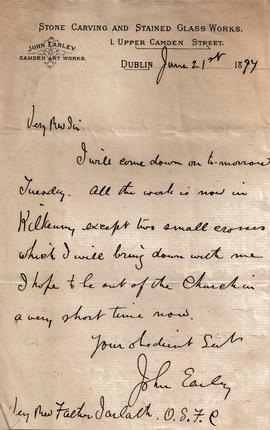 STONE CARVING AND STAINED GLASS WORKS.
JOHN EARLEY
CAMDEN ART WORKS.
1, UPPER CAMDEN STREET.
DUBLIN June 21st 1897
Very Rev Sir
I will come down on to-morrow
Tuesday. All the work is now in
Kilkenny except two small crosses
which I will bring down with me
I hope to be out of the Church in
a very short time now.
Your obedient Servt
John Earley
Very Rev Father Jarlath. O.S.F.C